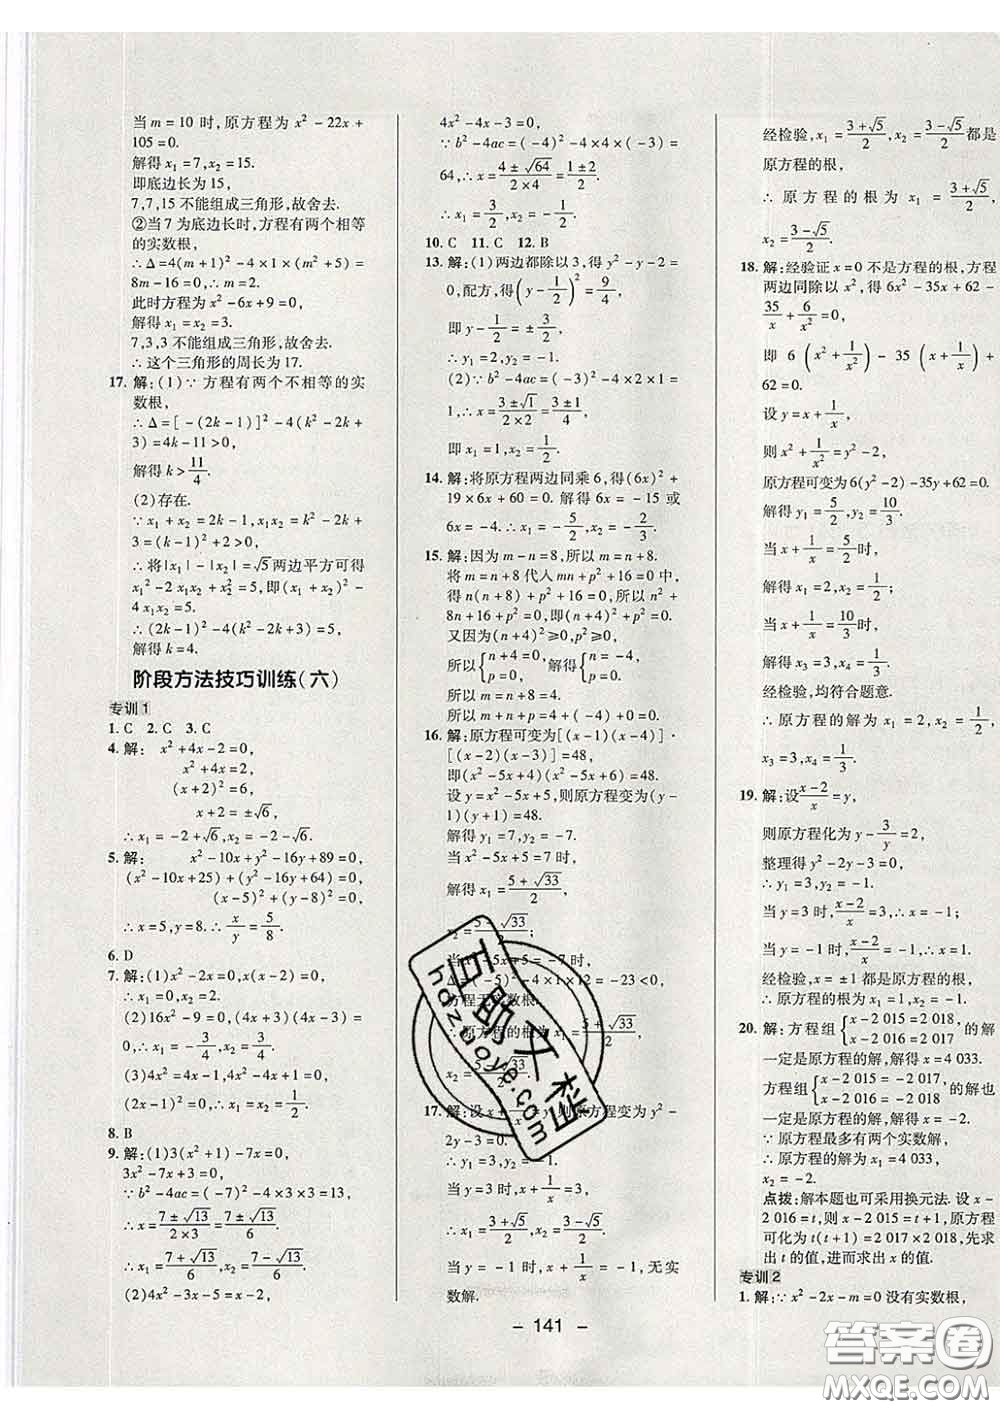 当 m = 10 时,原方程为 x² - 22x +
105 = 0.
解得 x₁ = 7, x₂ = 15.
即底边长为 15,
7,7,15 不能组成三角形,故舍去.
②当 7 为底边长时,方程有两个相等
的实数根,
∴ Δ = 4(m + 1)² - 4 × 1 × (m² + 5) =
8m - 16 = 0, m = 2.
此时方程为 x² - 6x + 9 = 0,
解得 x₁ = x₂ = 3.
7,3,3 不能组成三角形,故舍去.
∴ 这个三角形的周长为 17.
17. 解:(1)∵ 方程有两个不相等的实
数根,
∴ Δ = [-(2k - 1)]² - 4(k² - 2k +
3) = 4k - 11 > 0,
解得 k > 11/4.
(2)存在.
∵ x₁ + x₂ = 2k - 1, x₁x₂ = k² - 2k +
3 = (k - 1)² + 2 > 0,
∴ 将 |x₁| - |x₂| = √5 两边平方可得
x₁² - 2x₁x₂ + x₂² = 5, 即(x₁ + x₂)² -
4x₁x₂ = 5,
∴ (2k - 1)² - 4(k² - 2k + 3) = 5,
解得 k = 4.
阶段方法技巧训练(六)
专训1
1. C 2. C 3. C
4. 解: x² + 4x - 2 = 0,
x² + 4x = 2,
(x + 2)² = 6,
x + 2 = ±√6,
∴ x₁ = -2 + √6, x₂ = -2 - √6.
5. 解: x² - 10x + y² - 16y + 89 = 0,
(x² - 10x + 25) + (y² - 16y + 64) = 0,
(x - 5)² + (y - 8)² = 0,
∴ x = 5, y = 8. ∴ x/y = 5/8.
6. D
7. 解:(1)x² - 2x = 0, x(x - 2) = 0,
∴ x₁ = 0, x₂ = 2.
(2)16x² - 9 = 0, (4x + 3)(4x - 3) =
0, ∴ x₁ = -3/4, x₂ = 3/4.
(3)4x² = 4x - 1, 4x² - 4x + 1 = 0,
(2x - 1)² = 0, ∴ x₁ = x₂ = 1/2.
8. B
9. 解:(1)3(x² + 1) - 7x = 0,
3x² - 7x + 3 = 0,
∵ b² - 4ac = (-7)² - 4 × 3 × 3 = 13,
∴ x = (7 ± √13)/(2 × 3) = (7 ± √13)/6.
∴ x₁ = (7 + √13)/6, x₂ = (7 - √13)/6.
(2)4x² - 4x = 3,
4x² - 4x - 3 = 0,
∵ b² - 4ac = (-4)² - 4 × 4 × (-3) =
64, ∴ x = (4 ± √64)/(2 × 4) = (1 ± 2)/2.
∴ x₁ = 3/2, x₂ = -1/2.
10. C 11. C 12. B
13. 解:(1)两边都除以 3,得 y² - y - 2 =
0, 配方,得 (y - 1/2)² = 9/4,
即 y - 1/2 = ±3/2,
∴ y₁ = 2, y₂ = -1.
(2)∵ b² - 4ac = (-3)² - 4 × 2 × 1 =
1, ∴ x = (3 ± √1)/(2 × 2) = (3 ± 1)/4,
即 x₁ = 1, x₂ = 1/2.
14. 解:将原方程两边同乘 6,得(6x)² +
19 × 6x + 60 = 0. 解得 6x = -15 或
6x = -4. ∴ x₁ = -5/2, x₂ = -2/3.
15. 解:因为 m - n = 8, 所以 m = n + 8.
将 m = n + 8 代入 mn + p² + 16 = 0 中,
得 n(n + 8) + p² + 16 = 0, 所以 n² +
8n + 16 + p² = 0, 即(n + 4)² + p² = 0.
又因为(n + 4)² ≥ 0, p² ≥ 0,
所以 {n + 4 = 0, p = 0, 解得 {n = -4, p = 0.
所以 m = n + 8 = 4,
所以 m + n + p = 4 + (-4) + 0 = 0.
16. 解:原方程可变为[(x - 1)(x - 4)]·
[(x - 2)(x - 3)] = 48,
即(x² - 5x + 4)(x² - 5x + 6) = 48.
设 y = x² - 5x + 5, 则原方程变为(y -
1)(y + 1) = 48.
解得 y₁ = 7, y₂ = -7.
当 x² - 5x + 5 = 7 时,
解得 x₁ = (5 + √33)/2,
x₂ = (5 - √33)/2.
当 x² - 5x + 5 = -7 时,
Δ = (-5)² - 4 × 1 × 12 = -23 < 0,
方程无实数根.
∴ 原方程的根为 x₁ = (5 + √33)/2,
x₂ = (5 - √33)/2.
17. 解:设 x + 1/x = y, 则原方程变为 y² -
2y - 3 = 0.
∴ y₁ = 3, y₂ = -1.
当 y = 3 时, x + 1/x = 3,
∴ x₁ = (3 + √5)/2, x₂ = (3 - √5)/2.
当 y = -1 时, x + 1/x = -1, 无实
数解.
经检验, x₁ = (3 + √5)/2, x₂ = (3 - √5)/2 都是
原方程的根,
∴ 原方程的根为 x₁ = (3 + √5)/2,
x₂ = (3 - √5)/2.
18. 解:经验证 x = 0 不是方程的根,方程
两边同除以 x², 得 6x² - 35x + 62 -
35/x + 6/x² = 0,
即 6(x² + 1/x²) - 35(x + 1/x) +
62 = 0.
设 y = x + 1/x,
则 x² + 1/x² = y² - 2,
原方程可变为 6(y² - 2) - 35y + 62 = 0.
解得 y₁ = 5/2, y₂ = 10/3.
当 x + 1/x = 5/2 时,
解得 x₁ = 2, x₂ = 1/2;
当 x + 1/x = 10/3 时,
解得 x₃ = 3, x₄ = 1/3.
经检验,均符合题意.
∴ 原方程的解为 x₁ = 2, x₂ = 1/2,
x₃ = 3, x₄ = 1/3.
19. 解:设 (x - 2)/x = y,
则原方程化为 y - 3/y = 2,
整理得 y² - 2y - 3 = 0,
∴ y₁ = 3, y₂ = -1.
当 y = 3 时, (x - 2)/x = 3, ∴ x = -1;
当 y = -1 时, (x - 2)/x = -1, ∴ x = 1.
经检验, x = ±1 都是原方程的根,
∴ 原方程的根为 x₁ = 1, x₂ = -1.
20. 解:方程组 {x - 2 015 = 2 018, x - 2 016 = 2 017 的解
一定是原方程的解,解得 x = 4 033.
方程组 {x - 2 015 = -2 017, x - 2 016 = -2 018 的解也
一定是原方程的解,解得 x = -2.
∵ 原方程最多有两个实数解,
∴ 原方程的解为 x₁ = 4 033,
x₂ = -2.
点拨:解本题也可采用换元法. 设 x -
2 016 = t, 则 x - 2 015 = t + 1, 原方程
可化为 t(t + 1) = 2 017 × 2 018, 先求
出 t 的值,进而求出 x 的值.
专训2
1. 解:∵ x² - 2x - m = 0 没有实数根,
- 141 -
互助文档
hdzuoye.com
答案圈
MXQE.COM